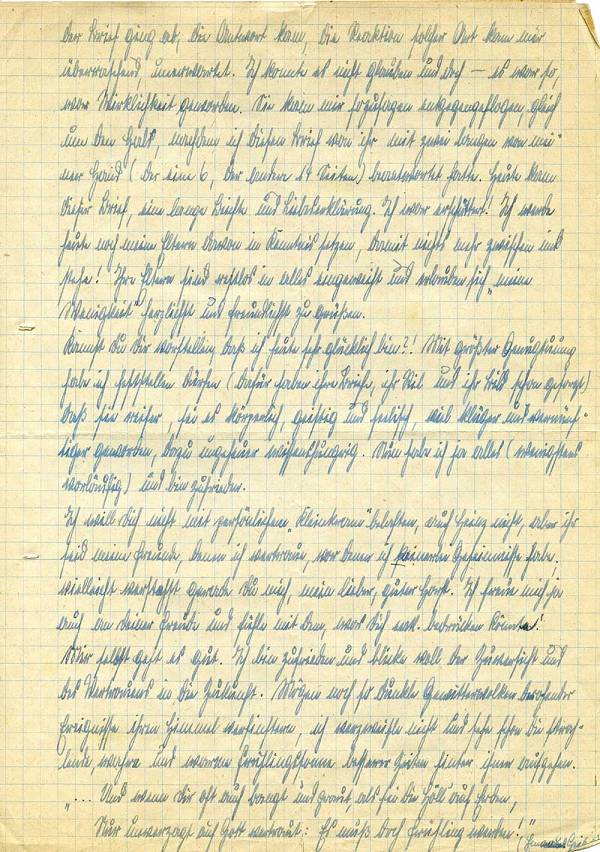 Der Brief ging ab, die Antwort kam, die Reaktion solcher Art kam mir
überraschend, unerwartet. Ich konnte es nicht glauben und doch — es war so,
war Wirklichkeit geworden. Sie kam mir sozusagen entgegengeflogen, gleich
um den Hals, nachdem ich diesen Brief von ihr mit zwei langen von mei-
ner Hand (der eine 6, der andere 14 Seiten) beantwortet hatte. Heute kam
dieser Brief, eine lange Beichte und Liebeserklärung. Ich war erschüttert! Ich werde
heute noch meine Eltern davon in Kenntnis setzen, damit nichts mehr zwischen uns
stehe. Ihre Eltern sind restlos in alles eingeweiht und erlauben sich „meine
Wenigkeit" herzlichst und freundlichst zu grüßen.
Kannst Du Dir vorstellen, daß ich heute sehr glücklich bin?! Mit größter Genugtuung
habe ich feststellen dürfen (dafür haben ihre Briefe, ihr Stil und ihr Bild schon gesorgt)
daß sie reifer, sei es körperlich, geistig und seelisch, viel klüger und vernünf-
tiger geworden, dazu ungeheuer wissenshungrig. Nun habe ich ja alles (wenigstens
vorläufig) und bin zufrieden.
Ich will Dich nicht mit persönlichem „Kleinkram" belasten, auch Heinz nicht, aber ihr
seid meine Freunde, denen ich vertraue, vor denen ich keinerlei Geheimnisse habe.
Vielleicht verstehst gerade Du mich, mein lieber, guter Horst. Ich freue mich ja
auch an Deiner Freude und fühle mit Dem, was Dich evtl. bedrücken könnte!
Mir selbst geht es gut. Ich bin zufrieden und blicke voll der Zuversicht und
des Vertrauens in die Zukunft. Mögen noch so dunkle Gewitterwolken drohender
Ereignisse ihren Himmel verfinstern, ich verzweifle nicht und sehe schon die strah-
lende, wahre und warme Frühlingssonne besserer Zeiten hinter ihnen aufgehen.
„... Und wenn Dir oft auch bangt und graut, als sei die Höll' auf Erden,
Nur unverzagt auf Gott vertraut: Es muß doch Frühling werden!"